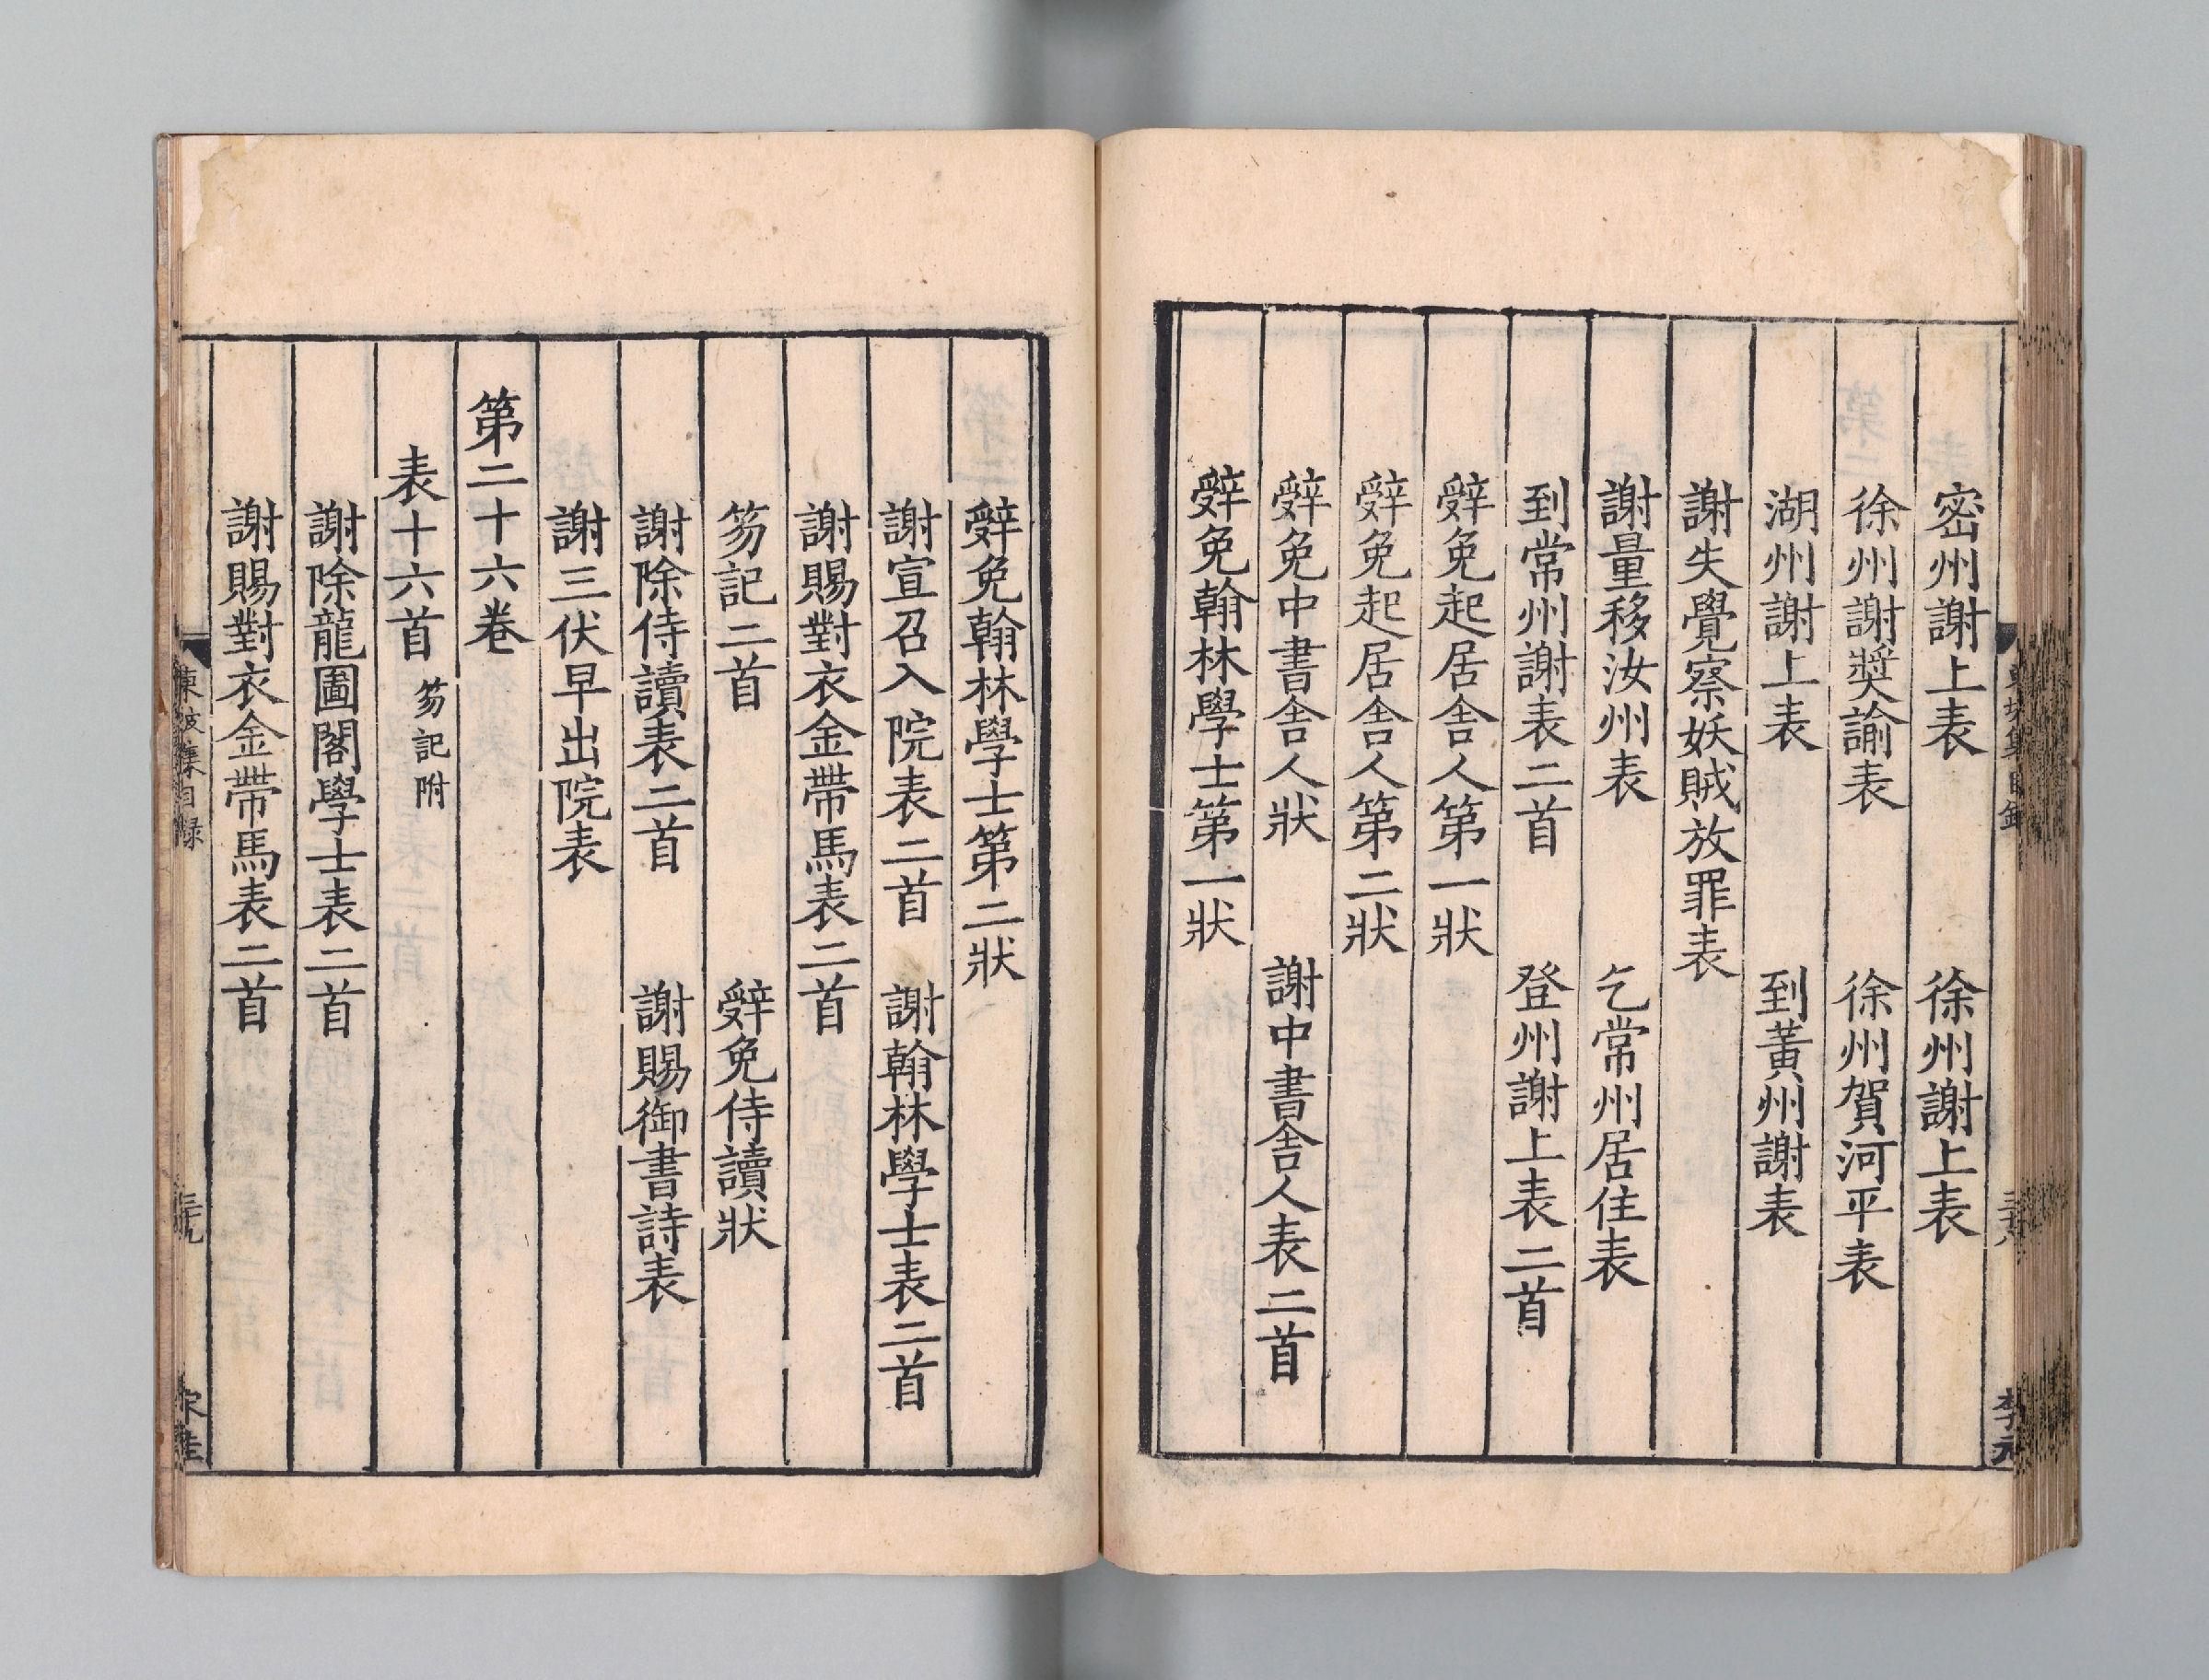 密州謝上表　徐州謝上表
徐州謝奬諭表　徐州賀河平表
湖州謝上表　到黃州謝表
謝失覺察妖賊放罪表
謝量移汝州表　乞常州居住表
到常州謝表二首　登州謝上表二首
辤免起居舍人第一狀
辤免起居舍人第二狀
辤免中書舍人狀　謝中書舍人表二首
辤免翰林學士第一狀
辤免翰林學士第二狀
謝宣召入院表二首　謝翰林學士表二首
謝賜對衣金帶馬表二首
笏記二首　辤免侍讀狀
謝除侍讀表二首　謝賜御書詩表
謝三伏早出院表
第二十六卷
表十六首 笏記附
謝除龍圖閣學士表二首
謝賜對衣金帶馬表二首
東坡集目録